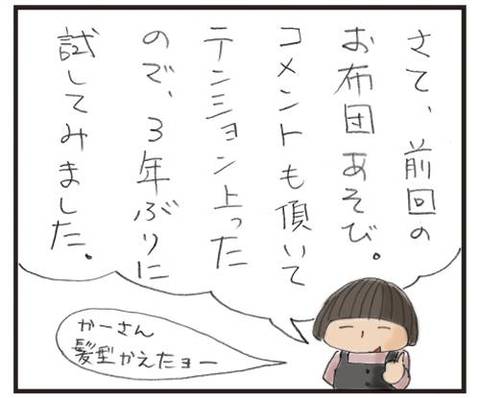 さて、前回の
お布団あそび。
コメントも頂いて
テンション上った
ので、3年ぶりに
試してみました。
かーさん
髪型かえたョー